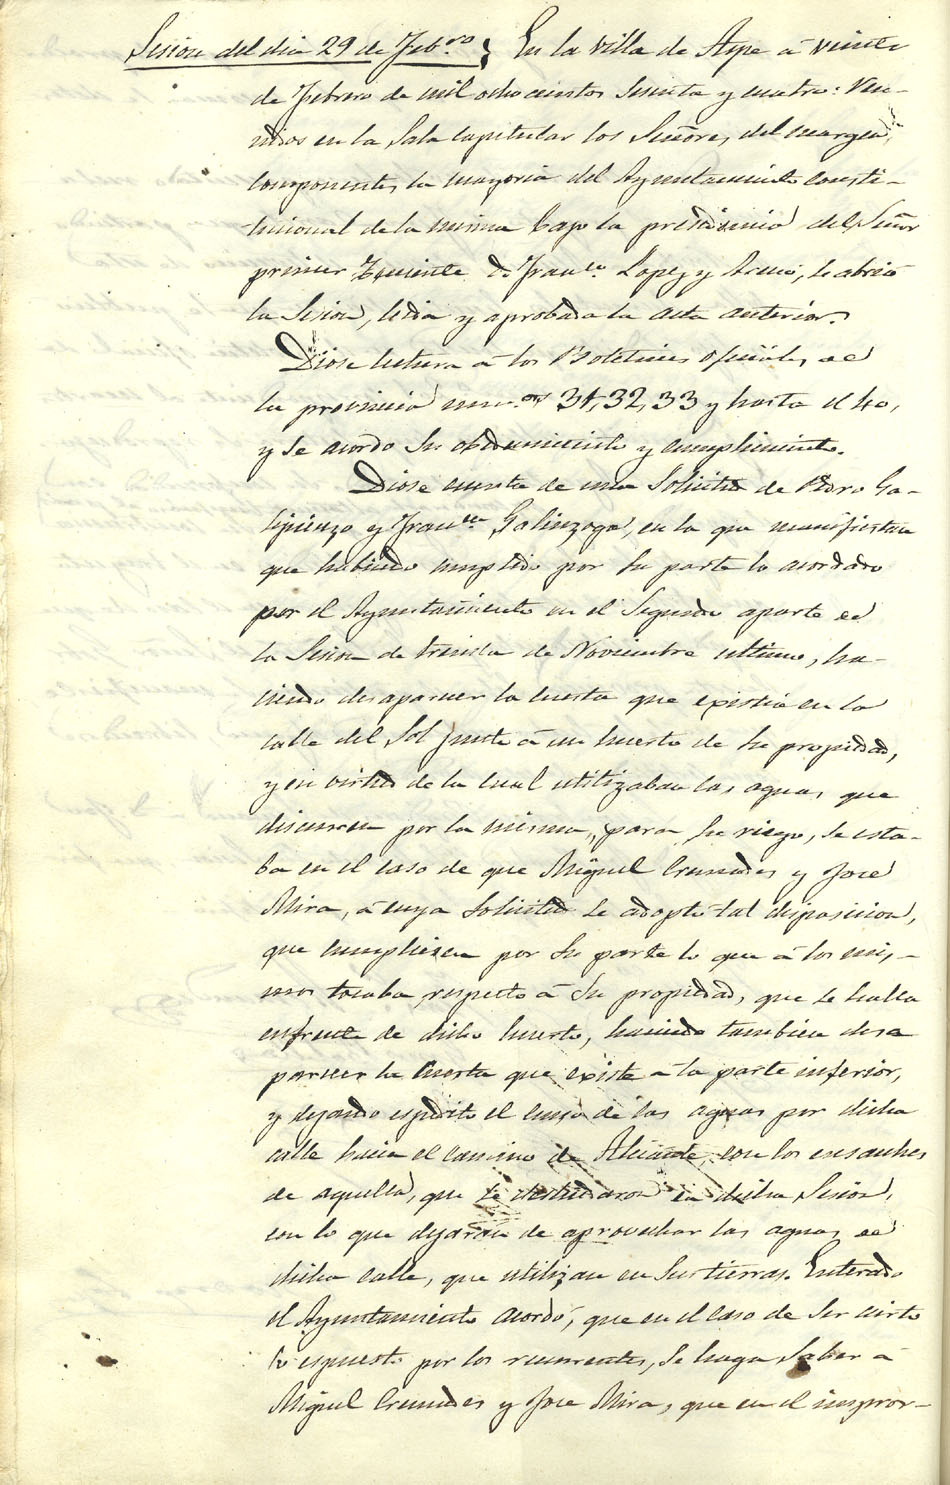 Sesion del dia 29 de Feb.ro } En la villa de Aspe á veinte
de Febrero de mil ochocientos sesenta y cuatro: Reu-
nidos en la Sala Capitular los Señores del margen,
componentes la mayoria del Ayuntamiento consti-
tucional de la misma bajo la presidencia del Señor
primer Teniente D. Fran.co Lopez y Acuó, se abrió
la Sesion, leida y aprobada la acta anterior.
Diose lectura á los Boletines oficiales de
la provincia num.os 31, 32, 33 y hasta el 40,
y se acordó su obedecimiento y cumplimiento.
Diose cuenta de una Solicitud de Pedro Ga-
lipienzo y Fran.co Galinzoga, en la que manifiestan
que habiendo cumplido por su parte lo acordado
por el Ayuntamiento en el Segundo aparte de
la Sesion de treinta de Noviembre ultimo, ha-
ciendo desaparecer la cuesta que existia en la
calle del Sol junto á un huerto de su propiedad,
y en virtud de la cual utilizaban las aguas que
discurren por la misma, para su riego, se esta-
ba en el caso de que Miguel Cremades y José
Mira, á cuya Solicitud se adoptó tal disposicion,
que cumpliesen por su parte lo que á los mis-
mos tocaba respecto á su propiedad, que se halla
enfrente de dicho huerto, haciendo tambien desa
parecer la cuesta que existe a la parte inferior,
y dejando espedito el curso de las aguas por dicha
calle hacia el camino de Alicante, con los ensanches
de aquella, que se en dicha Sesion,
con lo que dejarán de aprovechar las aguas de
dicha calle, que utilizan en sus tierras. Enterado
el Ayuntamiento acordó, que en el caso de ser cierto
lo espuesto por los recurrentes, se haga saber á
Miguel Cremades y José Mira, que en el impror-